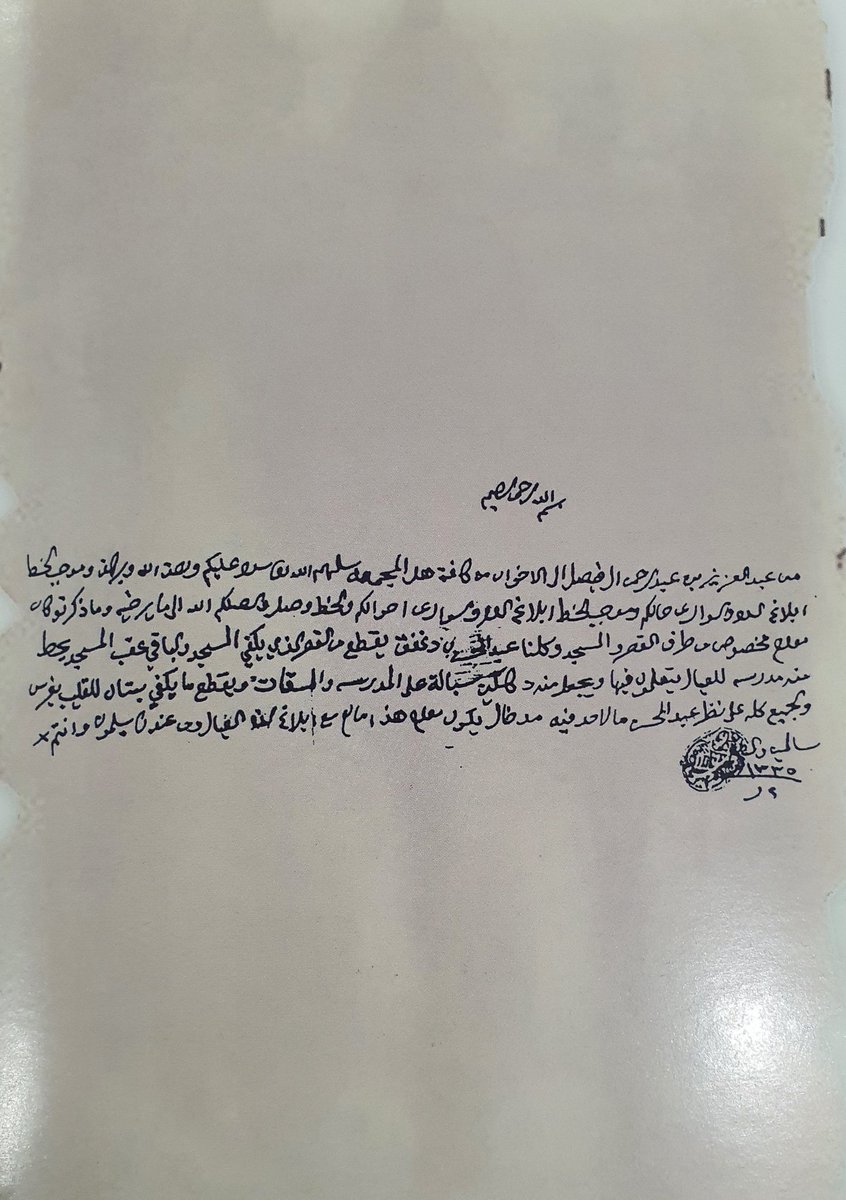 بسم الله الرحمن الرحيم
من عبدالعزيز بن عبدالرحمن الفيصل الى الاخوان كافة هل المجمعه سلمهم الله تعا سلام عليكم ورحمة الله وبركاته وموجب الخط
ابلاغ السلام والسؤال عن حالكم وموجب الخط ابلاغ السلام والسؤال عن احوالكم والخط وصل وصلكم الله الى ما يرضيه وما ذكرتوا كان
معلوم مخصوص من طرف القصر والمسجد وكلنا عبدالمحسن يقطع من القصر الذي يكفي المسجد والباقي عقب المسجد يحط
منه مدرسه للعيال يتعلمون فيها ويجعل منه دكاكين سبالة على المدرسه والسقات ويقطع ما يكفي بستان للقليب يغرس
والجميع كله على نظر عبدالمحسن ما لاحد فيه مدخال يكون معلوم هذا ما لزم مع ابلاغ السلام العيال ومن عندنا يسلمون وانتم
سالمين والسلام
١٣٣٥
٢ ر